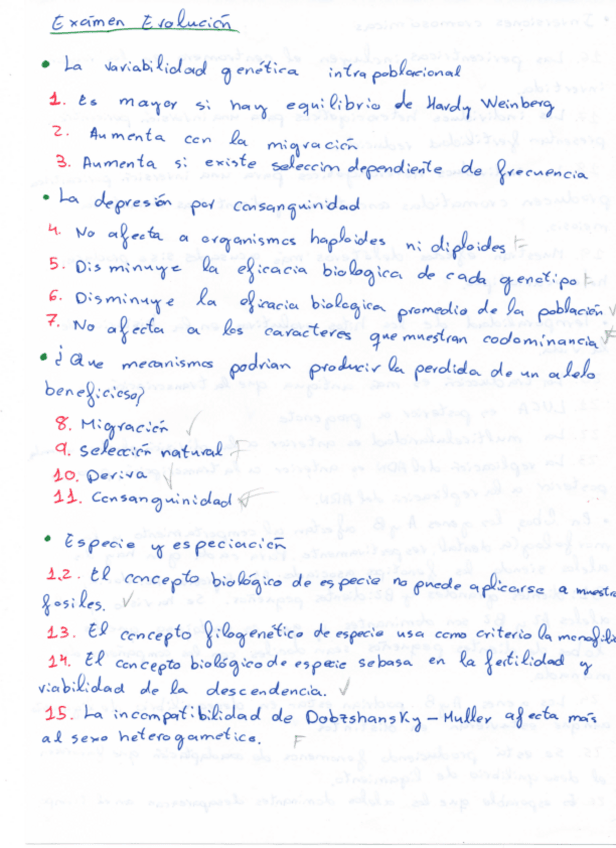 Exámen Evolución
• La variabilidad genética intrapoblacional
1. Es mayor si hay equilibrio de Hardy Weinberg
2. Aumenta con la migración
3. Aumenta si existe selección dependiente de frecuencia
• La depresión por consanguinidad
4. No afecta a organismos haploides ni diploides F
5. Disminuye la eficacia biologica de cada genotipo F
6. Disminuye la eficacia biologica promedio de la población ✓
7. No afecta a los caracteres que muestran codominancia
• ¿Que mecanismos podrian producir la perdida de un alelo
beneficioso?
8. Migración ✓
9. Selección natural F
10. Deriva ✓
11. Consanguinidad F
• Especie y especiación
12. El concepto biológico de especie no puede aplicarse a muestra
fosiles. ✓
13. El concepto filogenético de especie usa como criterio la monofilia
14. El concepto biológico de especie se basa en la fertilidad y
viabilidad de la descendencia. ✓
15. La incompatibilidad de Dobzshansky-Muller afecta más
al sexo heterogametico. F